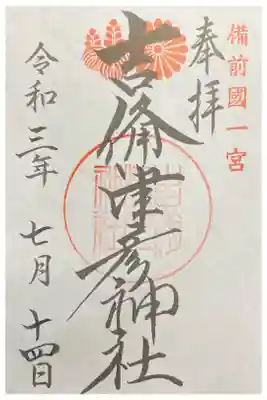 備前國一宮
奉拝
吉備津彦神社
令和三年 七月 十四日